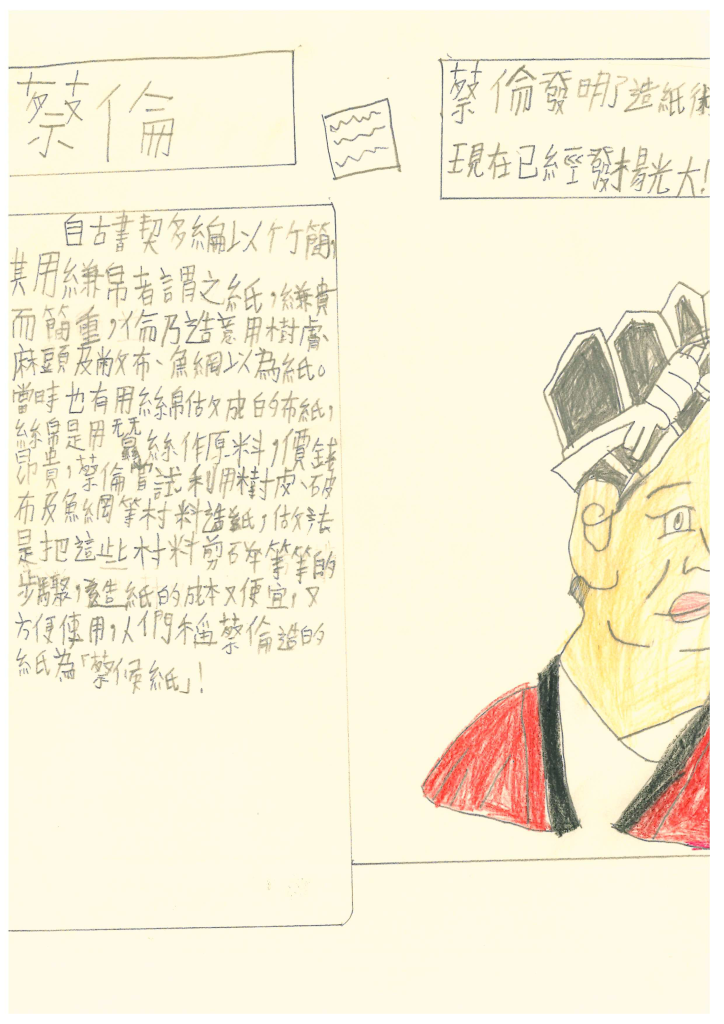 蔡倫
蔡倫發明了造紙術
現在已經發揚光大!
自古書契多編以竹簡,
其用縑帛者謂之紙,縑貴
而簡重,倫乃造意用樹膚、
麻頭及敝布、魚網以為紙。
當時也有用絲綿做成的布紙,
絲帛是用蠶絲作原料,價錢
昂貴,蔡倫嘗試利用樹皮、破
布及魚網等村料造紙,做法
是把這些村料剪碎等等的
步驟,造紙的成本又便宜,又
方便使用,人們稱蔡倫造的
紙為「蔡侯紙」!